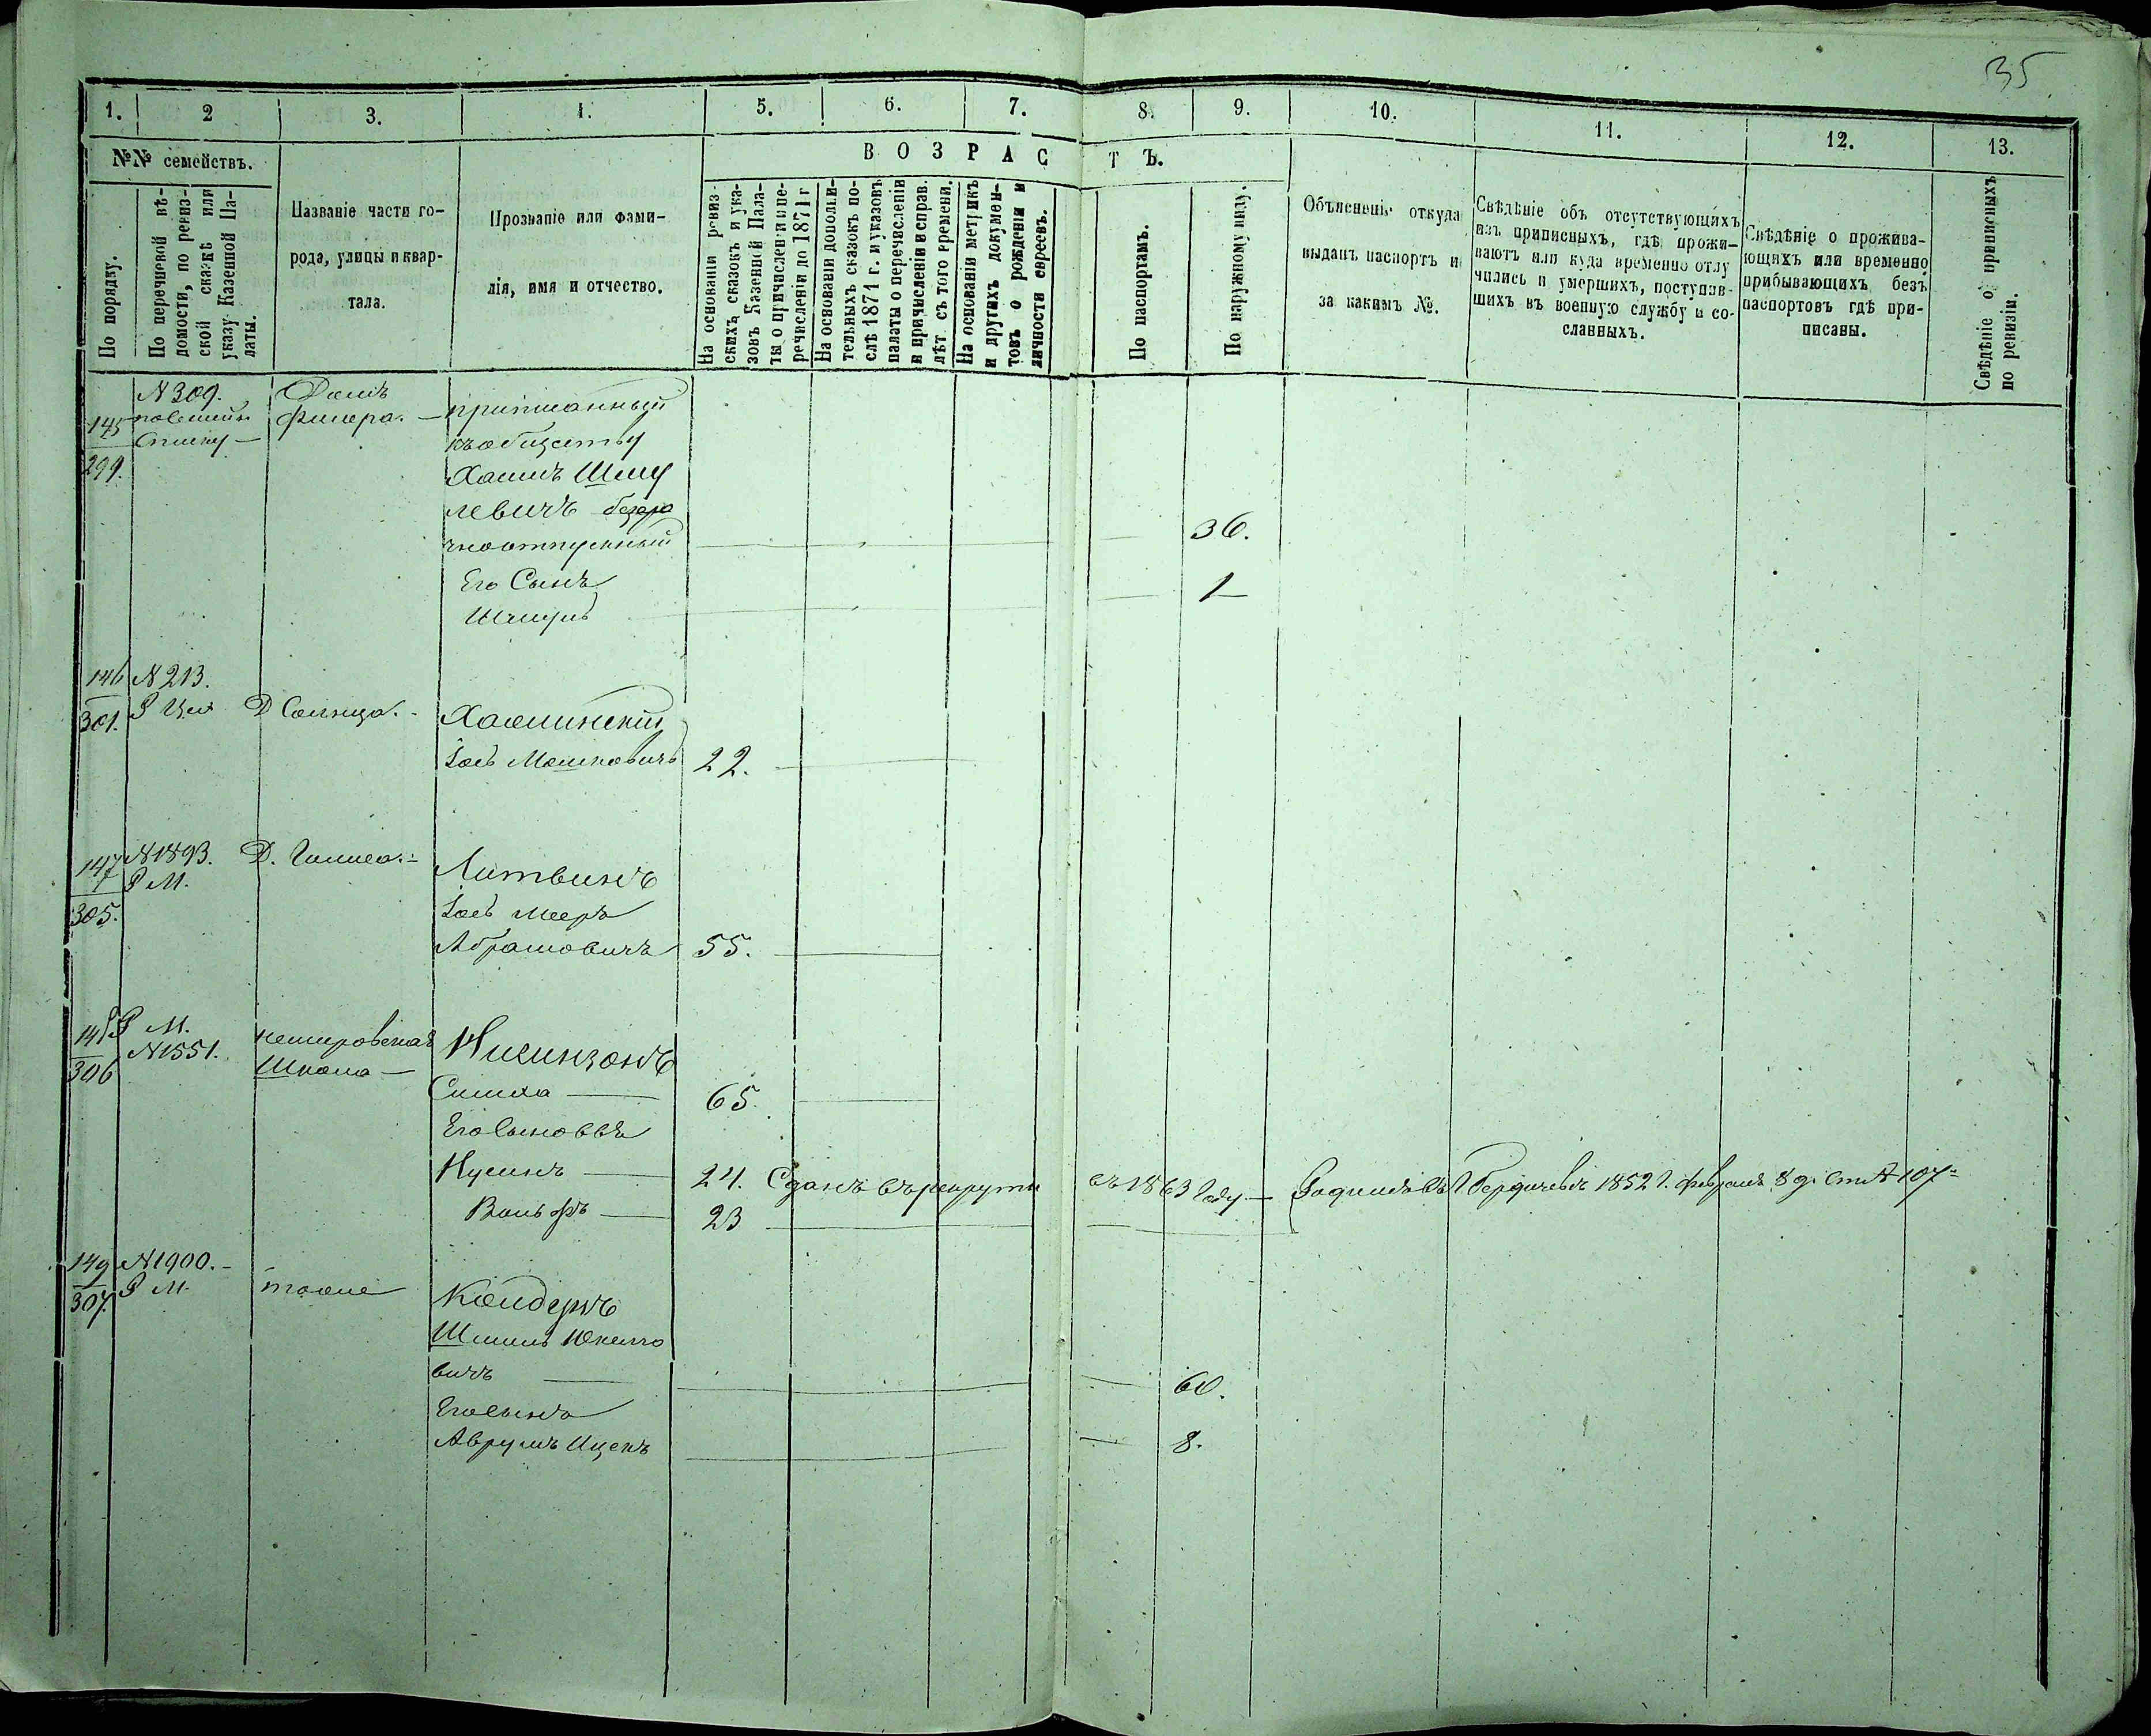 35
1. 2 3. 4. 5. 6. 7. 8. 9. 10. 11. 12. 13.
№№ семействъ.
ВОЗРАСТЪ.
По порядку.
По перечневой вѣ-
домости, по ревиз-
ской сказкѣ или
указу Казенной Па-
латы.
Названіе части го-
рода, улицы и квар-
тала.
Прозваніе или фами-
лія, имя и отчество.
На основаніи ревиз-
скихъ сказокъ и ука-
зовъ Казенной Пала-
ты о причисленіи и пе-
речисленіи до 1871 г
На основаніи дополни-
тельныхъ сказокъ по-
слѣ 1871 г. и указовъ
палаты о перечисленіи
и причисленіи и справ.
лѣт съ того времени.
На основаніи метрикъ
и другихъ докумен-
товъ о рожденіи и
личности евреевъ.
По паспортамъ.
По наружному виду.
Объясненіе откуда
выданъ паспортъ и
за какимъ №.
Свѣдѣніе объ отсутствующихъ
изъ приписныхъ, гдѣ прожи-
ваютъ или куда временно отлу
чились и умершихъ, поступив-
шихъ въ военную службу и со-
сланныхъ.
Свѣдѣніе о прожива-
ющихъ или временно
прибывающихъ безъ
паспортовъ гдѣ при-
писаны.
Свѣдѣніе о приписныхъ
по ревизіи.
145 N 309. Домъ
299.
къобществу
Хаимъ Шму
левичъ безсро
чноотпускный 36.
Его Сынъ 1
146 N 213.
301. Р
Іось Мошковичъ 22.
147 N 1893. Д.
Р М. Литвинъ
305. Іось Мееръ
Абрамовичъ 55.
148 Р М. немировская
N 1551. Школа
306 Симха 65.
Его Сыновья
Нусинъ 24. Сданъ въ рекруты въ 1863 Году Родился въ Г. Бердичевѣ 1852 Г. февраля 8 д. N 107
Вольфъ 23
149 N 1900.
307. Р М. тоже
вичъ 60.
Его сынъ
Аврумъ Ицекъ 8.